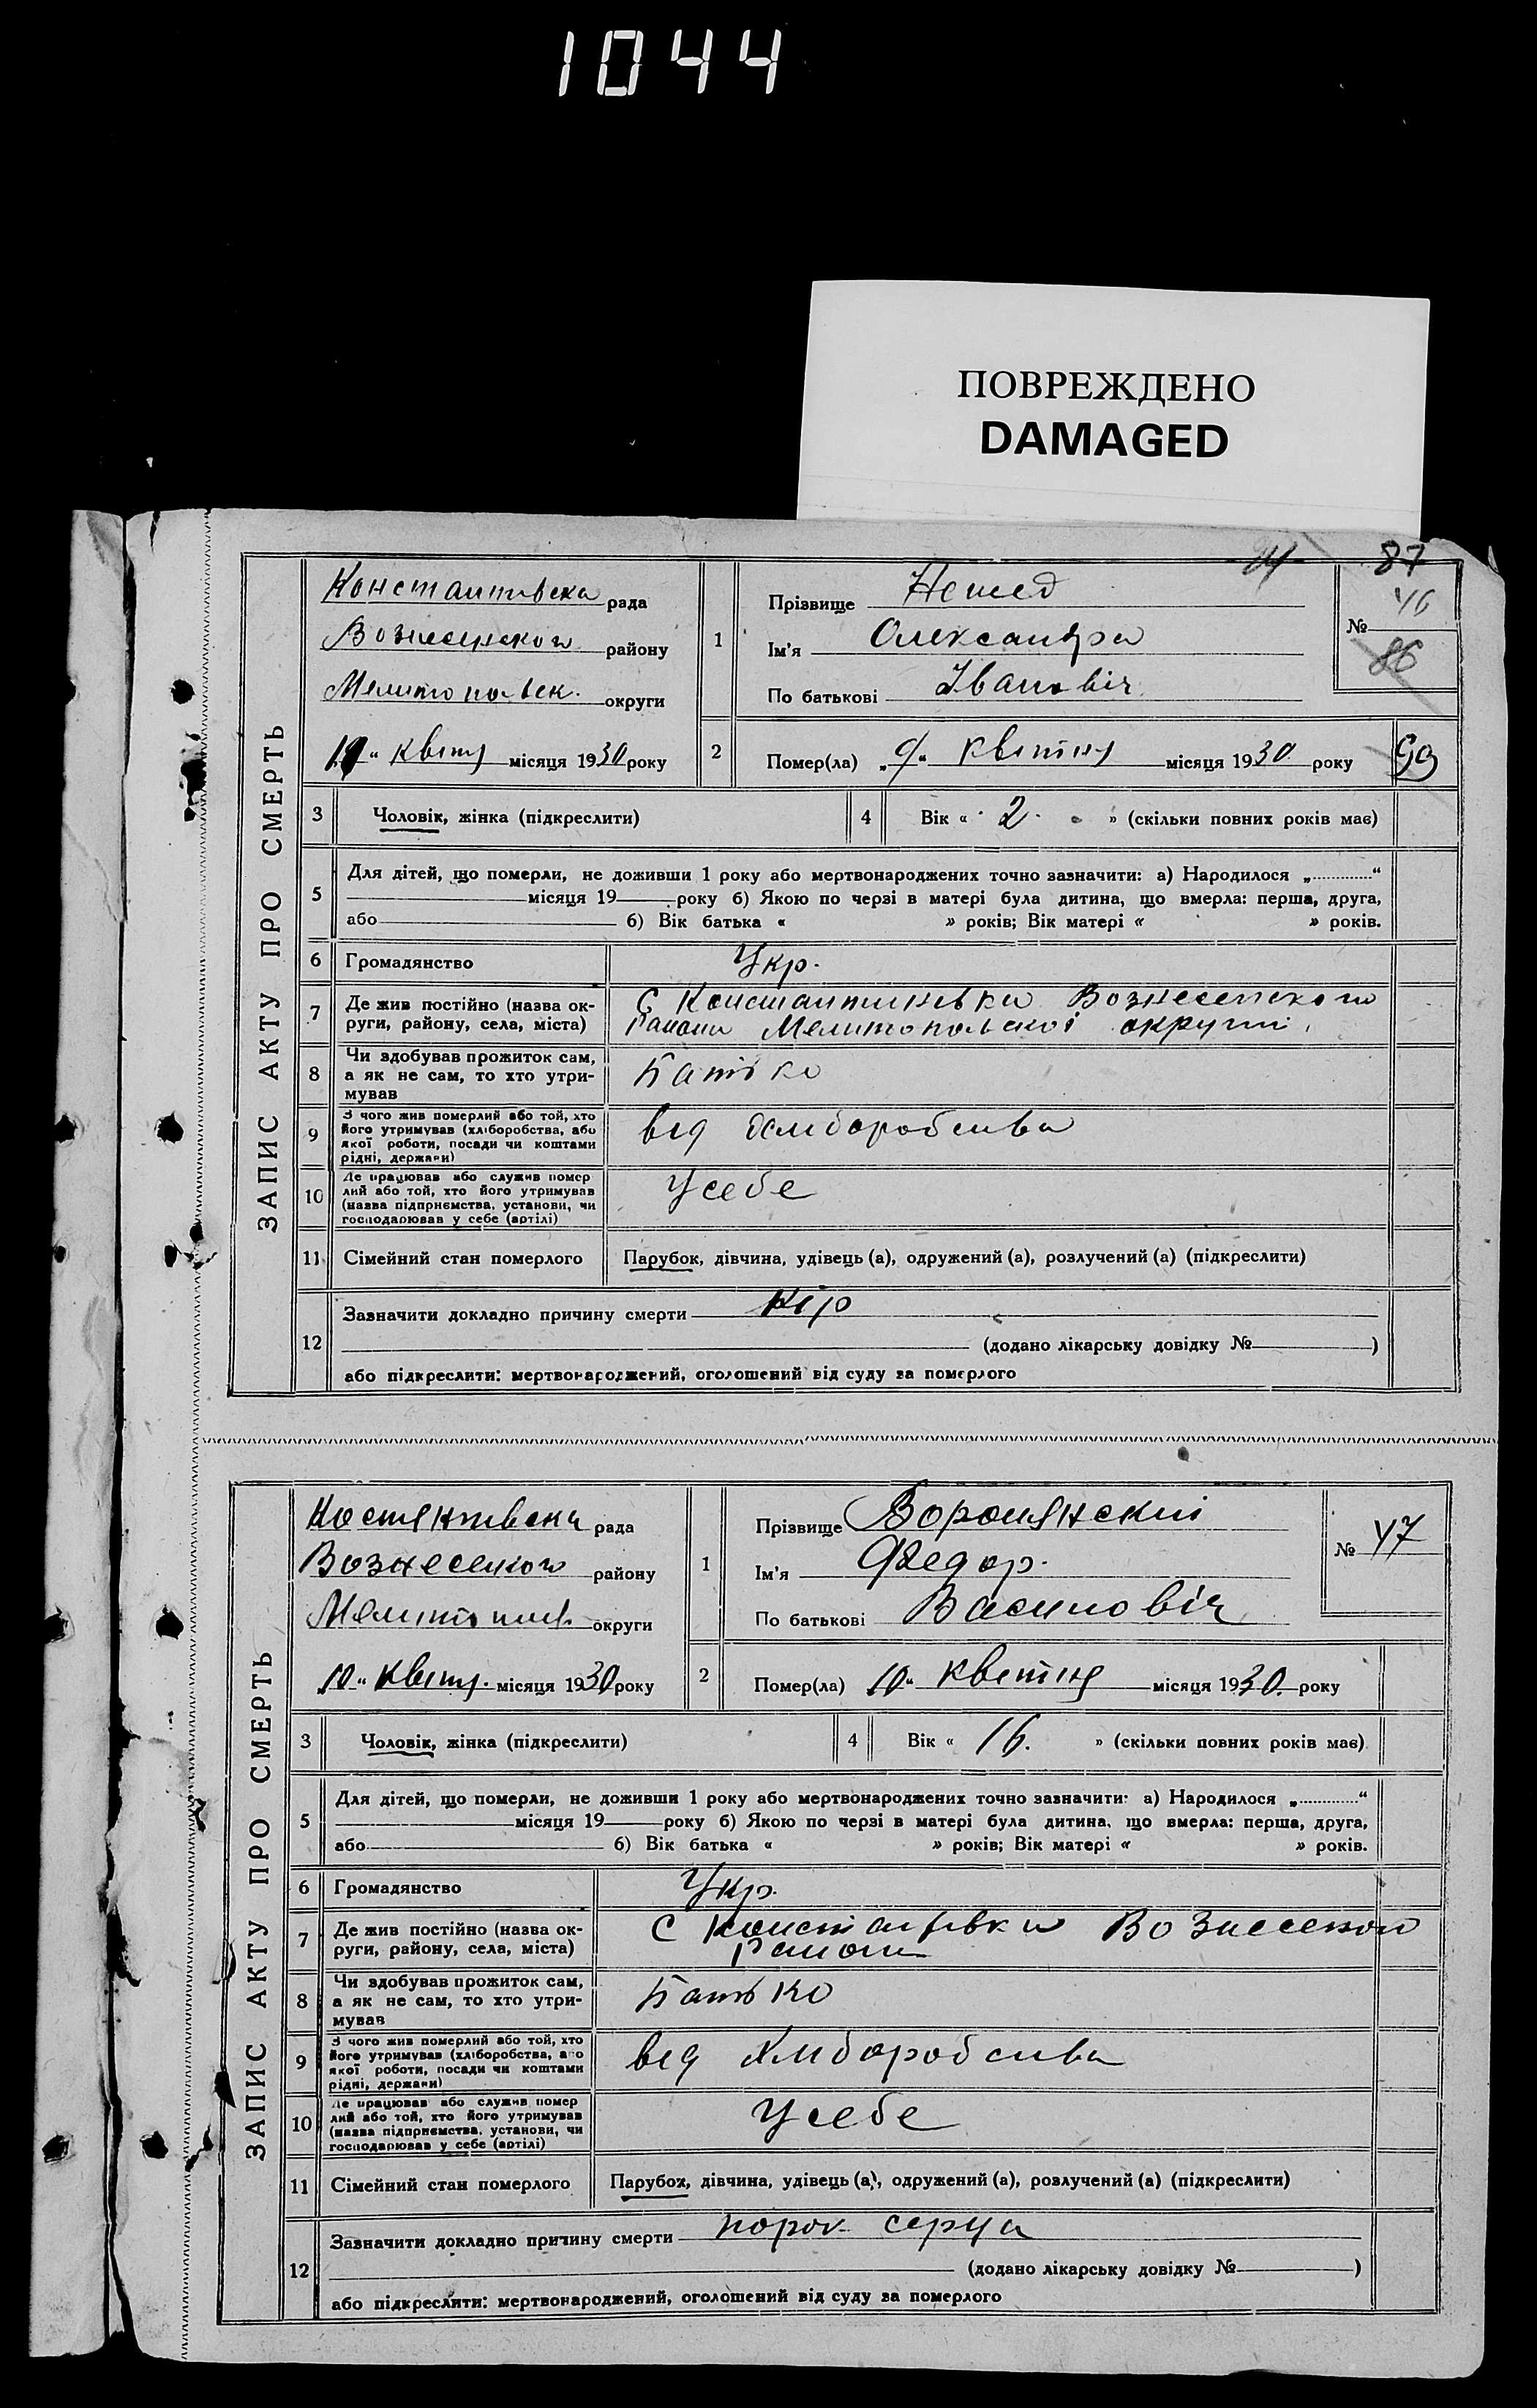 1044
ПОВРЕЖДЕНО
DAMAGED
87
ЗАПИС АКТУ ПРО СМЕРТЬ
Константивска рада
Вознесенского району
Мелитопольск. округи
„ Квітня місяця 1930 року
1
Прізвище
Ім'я Олександра
По батькові Івановіч
№ 46
86
2
Помер(ла) „9“ Квітня місяця 1930 року
90
3 Чоловік, жінка (підкреслити)
4 Вік « 2 » (скільки повних років має)
5 Для дітей, що померли, не доживши 1 року або мертвонароджених точно зазначити: а) Народилося „............“
місяця 19 року б) Якою по черзі в матері була дитина, що вмерла: перша, друга,
або б) Вік батька « » років; Вік матері « » років.
6 Громадянство Укр.
7 Де жив постійно (назва ок-
руги, району, села, міста)
С Константиновка Вознесенского
Району Мелитопольскоі округи
8 Чи здобував прожиток сам,
а як не сам, то хто утри-
мував
Батько
9 З чого жив померлий або той, хто
його утримував (хліборобства, або
якої роботи, посади чи коштами
рідні, держави)
від хлиборобства
10 Де працював або служив помер
лий або той, хто його утримував
(назва підприємства, установи, чи
господарював у себе (артілі)
Усебе
11 Сімейний стан померлого Парубок, дівчина, удівець (а), одружений (а), розлучений (а) (підкреслити)
12 Зазначити докладно причину смерти Кір
(додано лікарську довідку № )
або підкреслити: мертвонароджений, оголошений від суду за померлого
ЗАПИС АКТУ ПРО СМЕРТЬ
Костянтивска рада
Вознесенкого району
округи
10 „ Квітня місяця 1930 року
1
Прізвище Воронянский
Ім'я Федор.
По батькові Василовіч
№ 47
2
Помер(ла) 10 “ квітня місяця 1930. року
3 Чоловік, жінка (підкреслити)
4 Вік « 16. » (скільки повних років має)
5 Для дітей, що померли, не доживши 1 року або мертвонароджених точно зазначити: а) Народилося „............“
місяця 19 року б) Якою по черзі в матері була дитина, що вмерла: перша, друга,
або б) Вік батька « » років; Вік матері « » років.
6 Громадянство Укр.
7 Де жив постійно (назва ок-
руги, району, села, міста)
С Константівка Вознесенкого
Району
8 Чи здобував прожиток сам,
а як не сам, то хто утри-
мував
Батько
9 З чого жив померлий або той, хто
його утримував (хліборобства, або
якої роботи, посади чи коштами
рідні, держави)
від Хлиборобства
10 Де працював або служив помер
лий або той, хто його утримував
(назва підприємства, установи, чи
господарював у себе (артілі)
Усебе
11 Сімейний стан померлого Парубок, дівчина, удівець (а), одружений (а), розлучений (а) (підкреслити)
12 Зазначити докладно причину смерти порок серця
(додано лікарську довідку № )
або підкреслити: мертвонароджений, оголошений від суду за померлого